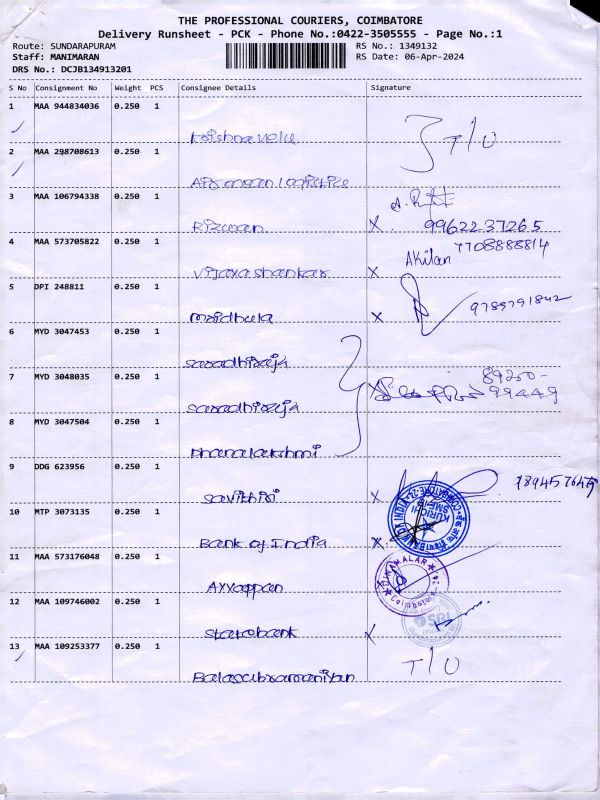 THE PROFESSIONAL COURIERS, COIMBATORE
Delivery Runsheet - PCK - Phone No.:0422-3505555 - Page No.:1
Route: SUNDARAPURAM RS No.: 1349132
Staff: MANIMARAN RS Date: 06-Apr-2024
DRS No.: DCJB134913201
S No Consignment No Weight PCS Consignee Details Signature
1 MAA 944834036 0.250 1
Krishnavelu T/O
2 MAA 298708613 0.250 1
logistics
3 MAA 106794338 0.250 1
Rizwan X 99622 37265
4 MAA 573705822 0.250 1 7708888814
Vijayashankar X Akilan
5 DPI 248811 0.250 1
Mridhula X 9789791842
6 MYD 3047453 0.250 1
Saradhiraja
7 MYD 3048035 0.250 1 89200-
Saradhiraja 99449
8 MYD 3047504 0.250 1
Dhanalakshmi
9 DDG 623956 0.250 1
Savithiri X
10 MTP 3073135 0.250 1 KURICHI SME
Bank of India X
11 MAA 573176048 0.250 1 DINAMALAR
Ayyappan Coimbatore
12 MAA 109746002 0.250 1 SBI
State bank X
13 MAA 109253377 0.250 1 T/O
Balasubramaniyan